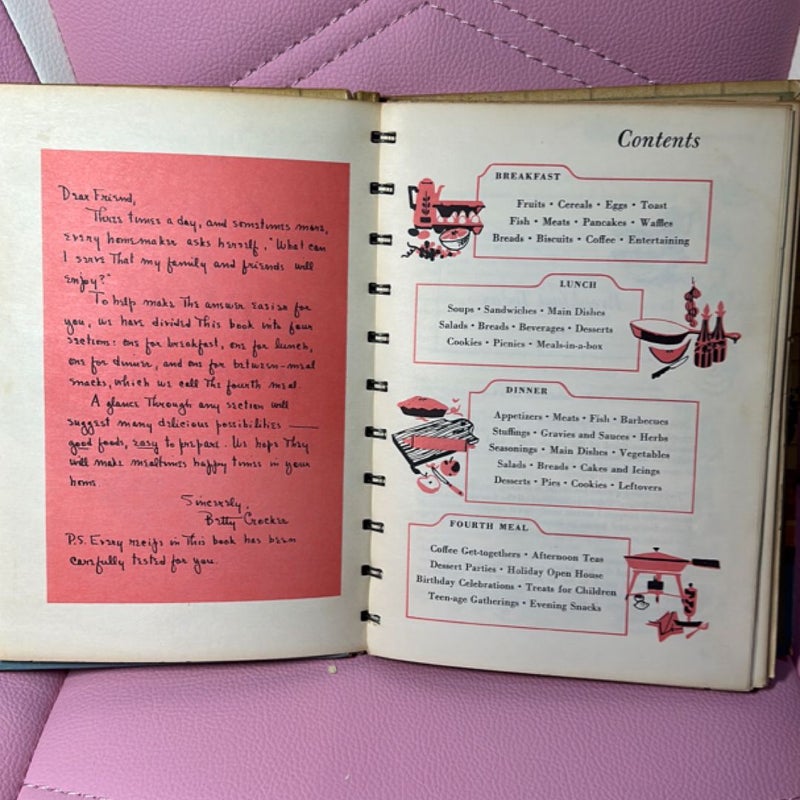 Dear Friend,
Three times a day, and sometimes more,
every homemaker asks herself, "What can
I serve that my family and friends will
enjoy?"
To help make the answer easier for
you, we have divided this book into four
sections: one for breakfast, one for lunch,
one for dinner, and one for between-meal
snacks, which we call the fourth meal.
A glance through any section will
suggest many delicious possibilities ——
good foods, easy to prepare. We hope they
will make mealtimes happy times in your
home.
Sincerely,
Betty Crocker
P.S. Every recipe in this book has been
carefully tested for you.
Contents
BREAKFAST
Fruits • Cereals • Eggs • Toast
Fish • Meats • Pancakes • Waffles
Breads • Biscuits • Coffee • Entertaining
LUNCH
Soups • Sandwiches • Main Dishes
Salads • Breads • Beverages • Desserts
Cookies • Picnics • Meals-in-a-box
DINNER
Appetizers • Meats • Fish • Barbecues
Stuffings • Gravies and Sauces • Herbs
Seasonings • Main Dishes • Vegetables
Salads • Breads • Cakes and Icings
Desserts • Pies • Cookies • Leftovers
FOURTH MEAL
Coffee Get-togethers • Afternoon Teas
Dessert Parties • Holiday Open House
Birthday Celebrations • Treats for Children
Teen-age Gatherings • Evening Snacks